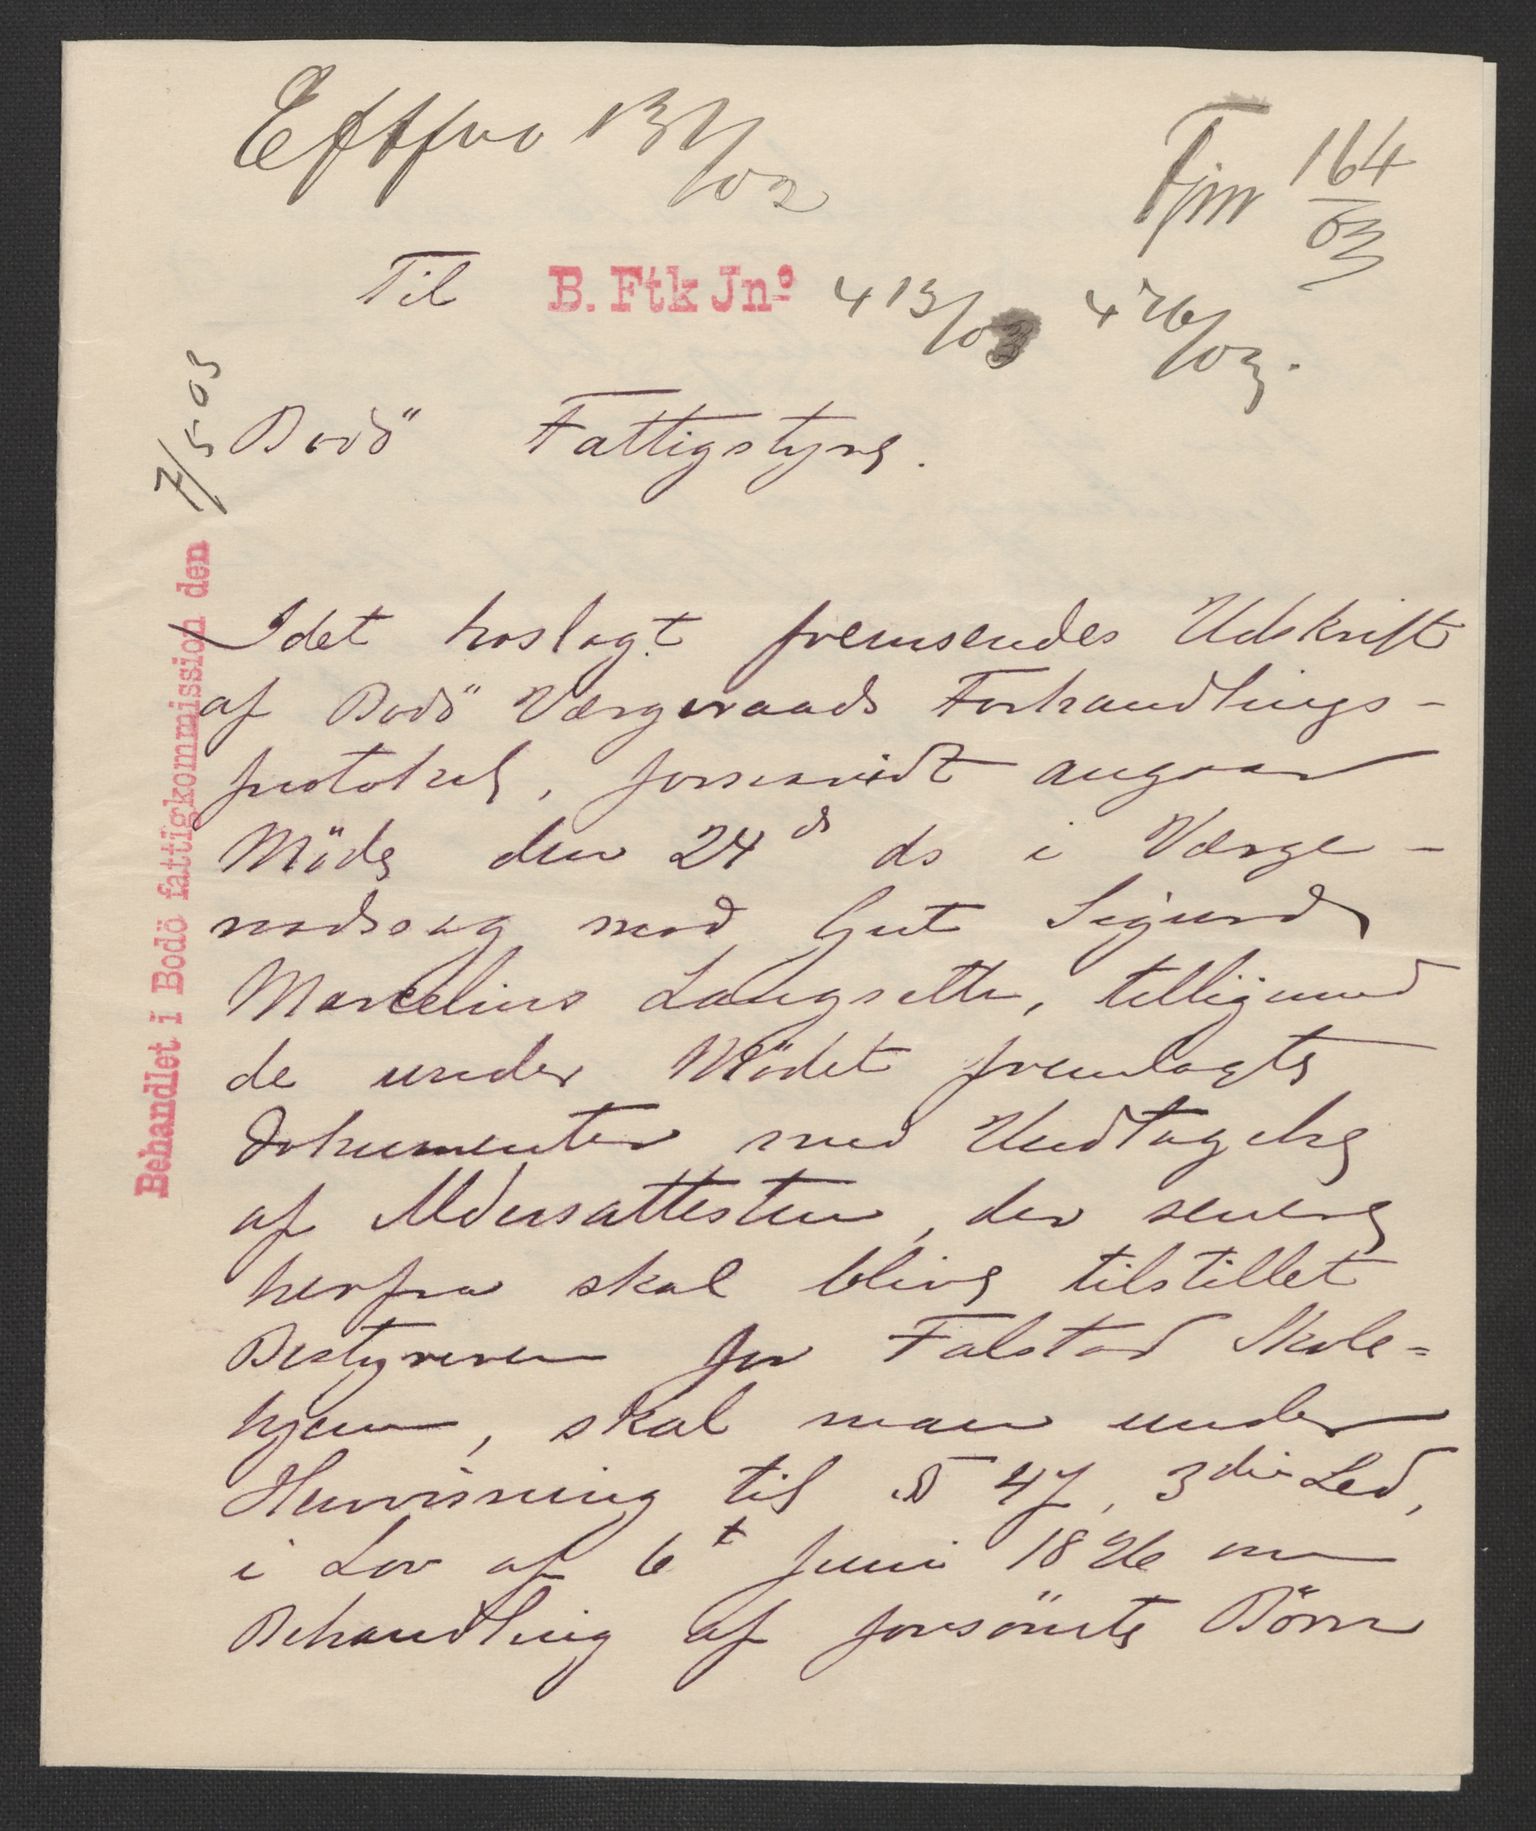 131/02
Fjm 164/03
Til B. Ftk Jnº 413/03 426/03.
Bodö Fattigstyre.
Behandlet i Bodö fattigkommission den 7/5 03
Idet hoslagt fremsendes Udskrift
af Bodö Værgeraads Forhandlings-
protokol, forsaavidt angaar
Möde den 24de ds i Værge-
raadssag mod Gut Sigurd
Marcelius Langsette, tilligemed
de under Mödet fremlagte
Dokumenter med Undtagelse
af Aldersattesten, der senere
herfra skal blive tilstillet
Bestyreren for Falstad Skole-
hjem, skal man under
Henvisning til § 47, 3die Led,
i Lov af 6t Juni 1896 om
Behandling af forsömte Börn